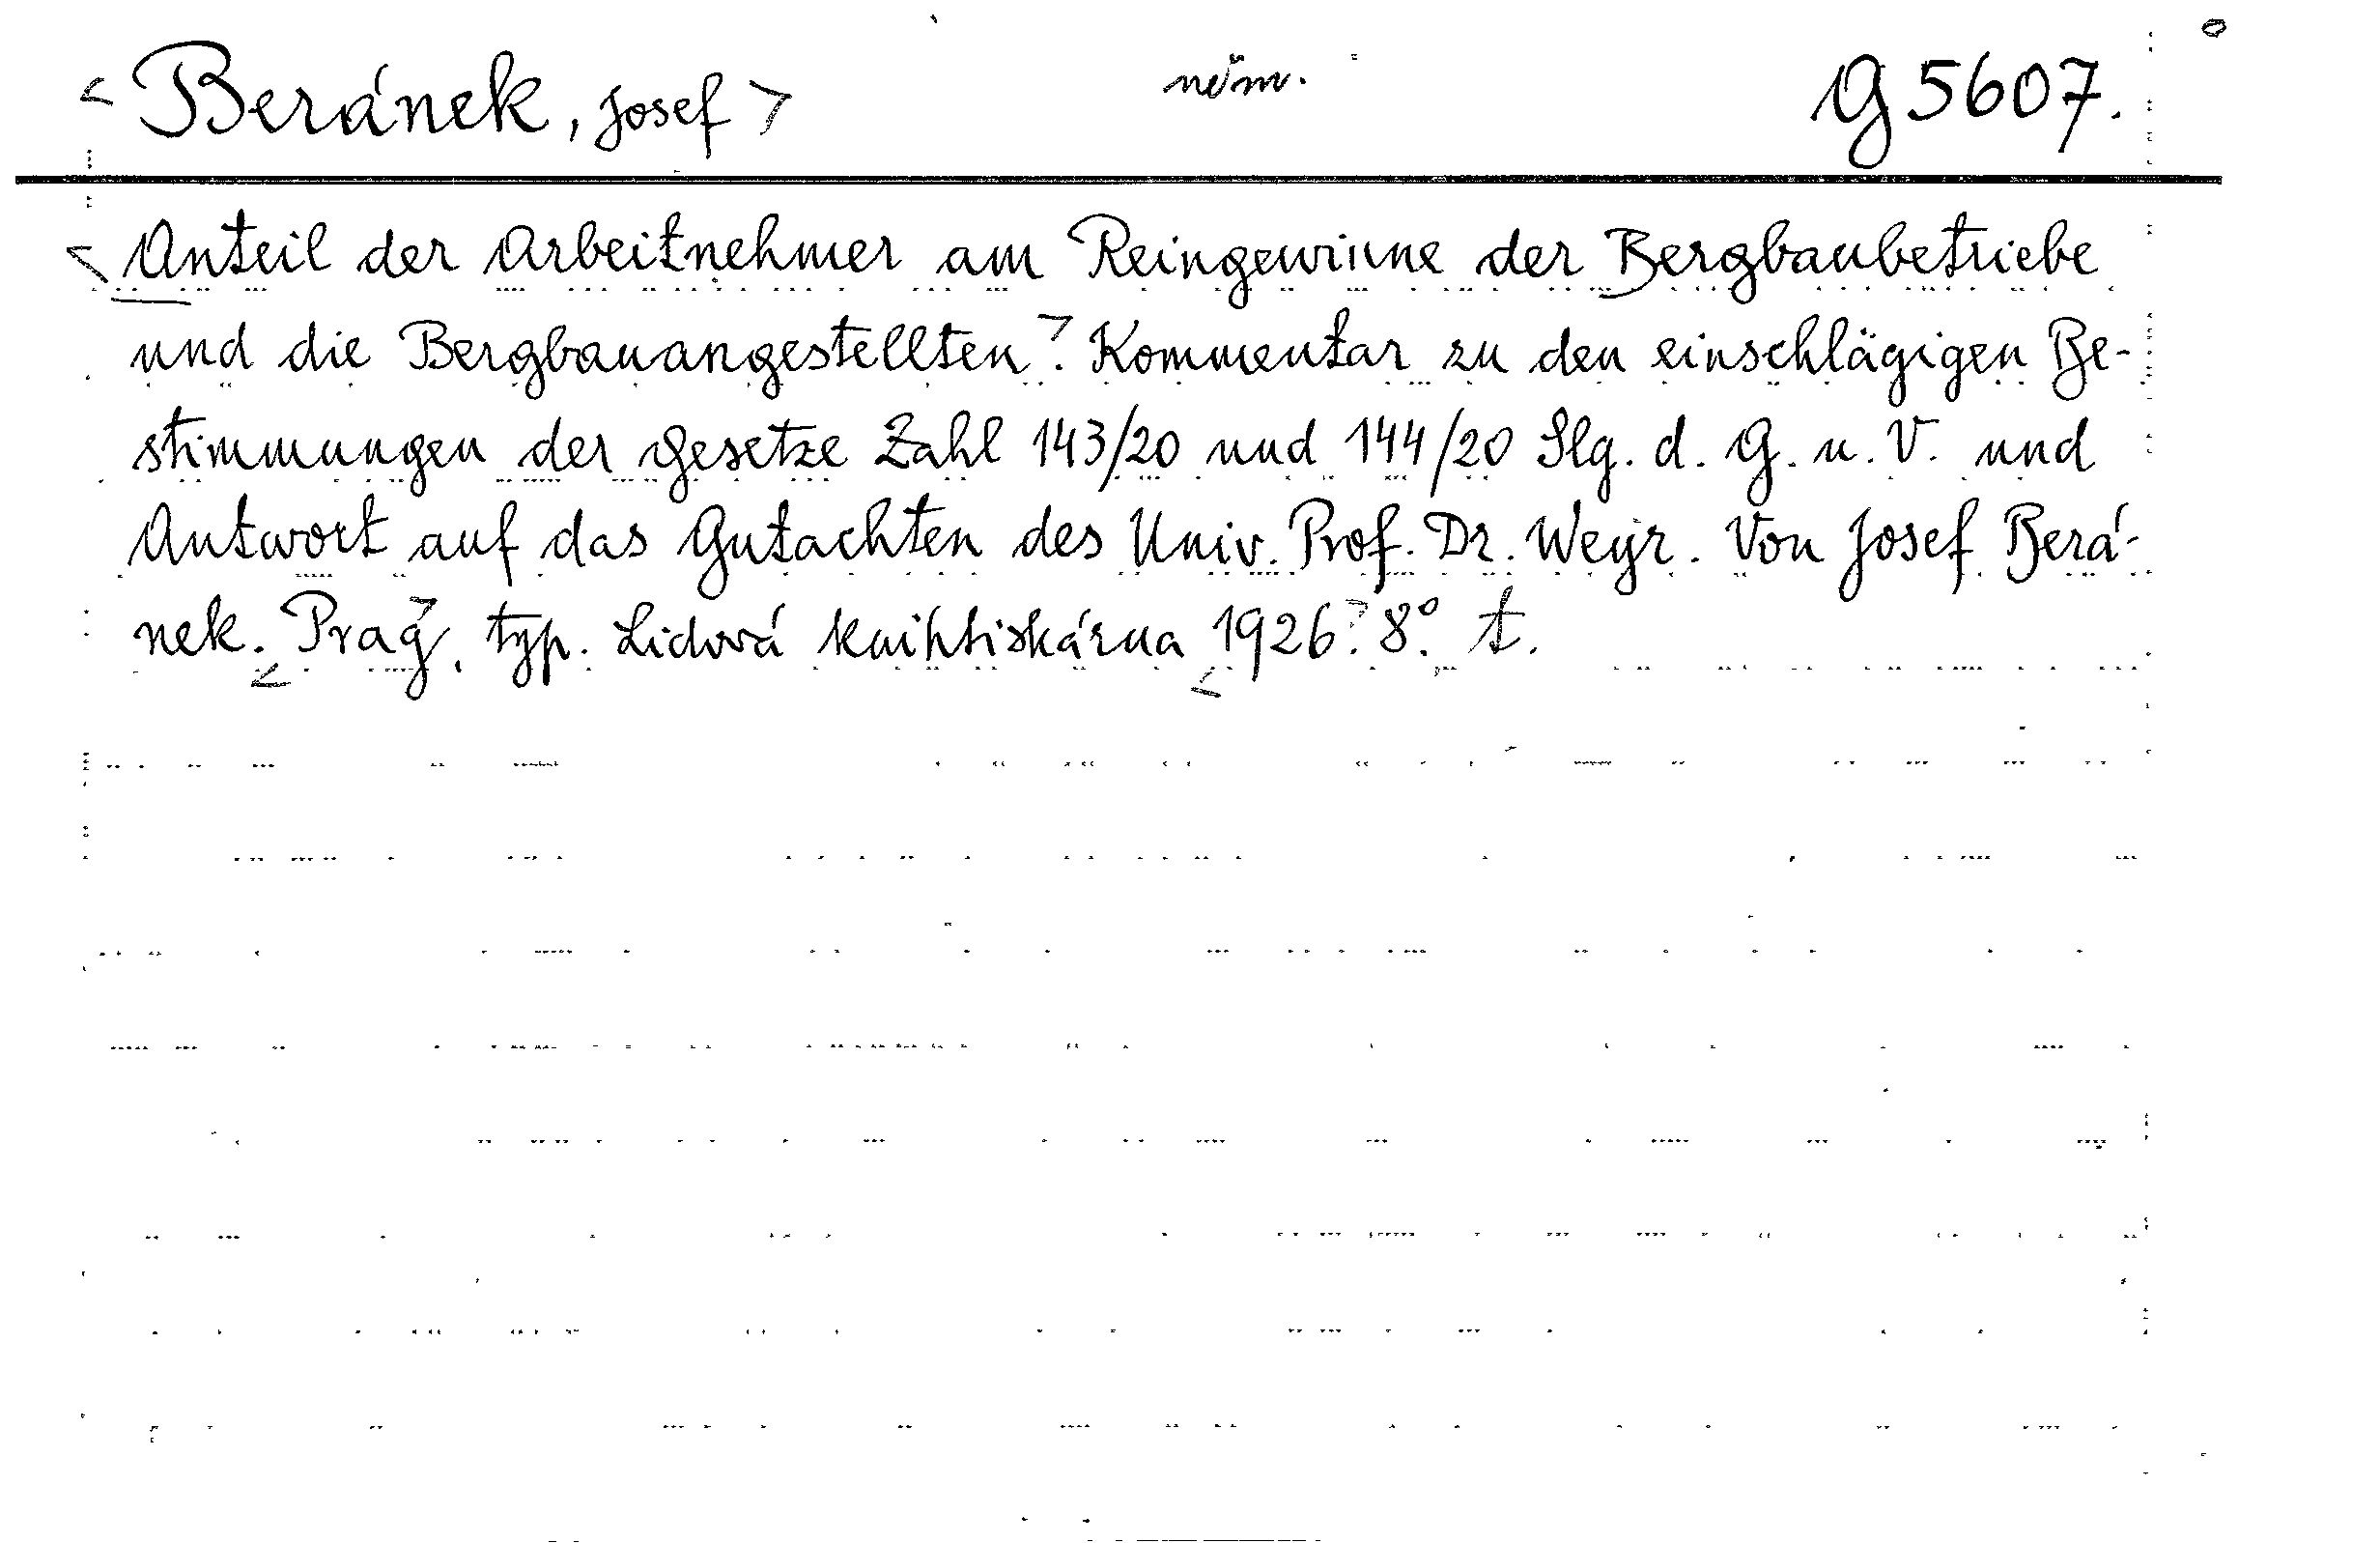 < Beránek, Josef > něm. G 5607.
< Anteil der Arbeitnehmer am Reingewinne der Bergbaubetriebe
und die Bergbauangestellten > . Kommentar zu den einschlägigen Be-
stimmungen der Gesetze Zahl 143/20 und 144/20 Slg. d. G. u. V. und
Antwort auf das Gutachten des Univ. Prof. Dr. Weyr. Von Josef Berá-
nek. < Prag > , typ. Lidová knihtiskárna < 1926 > . 8°. t.